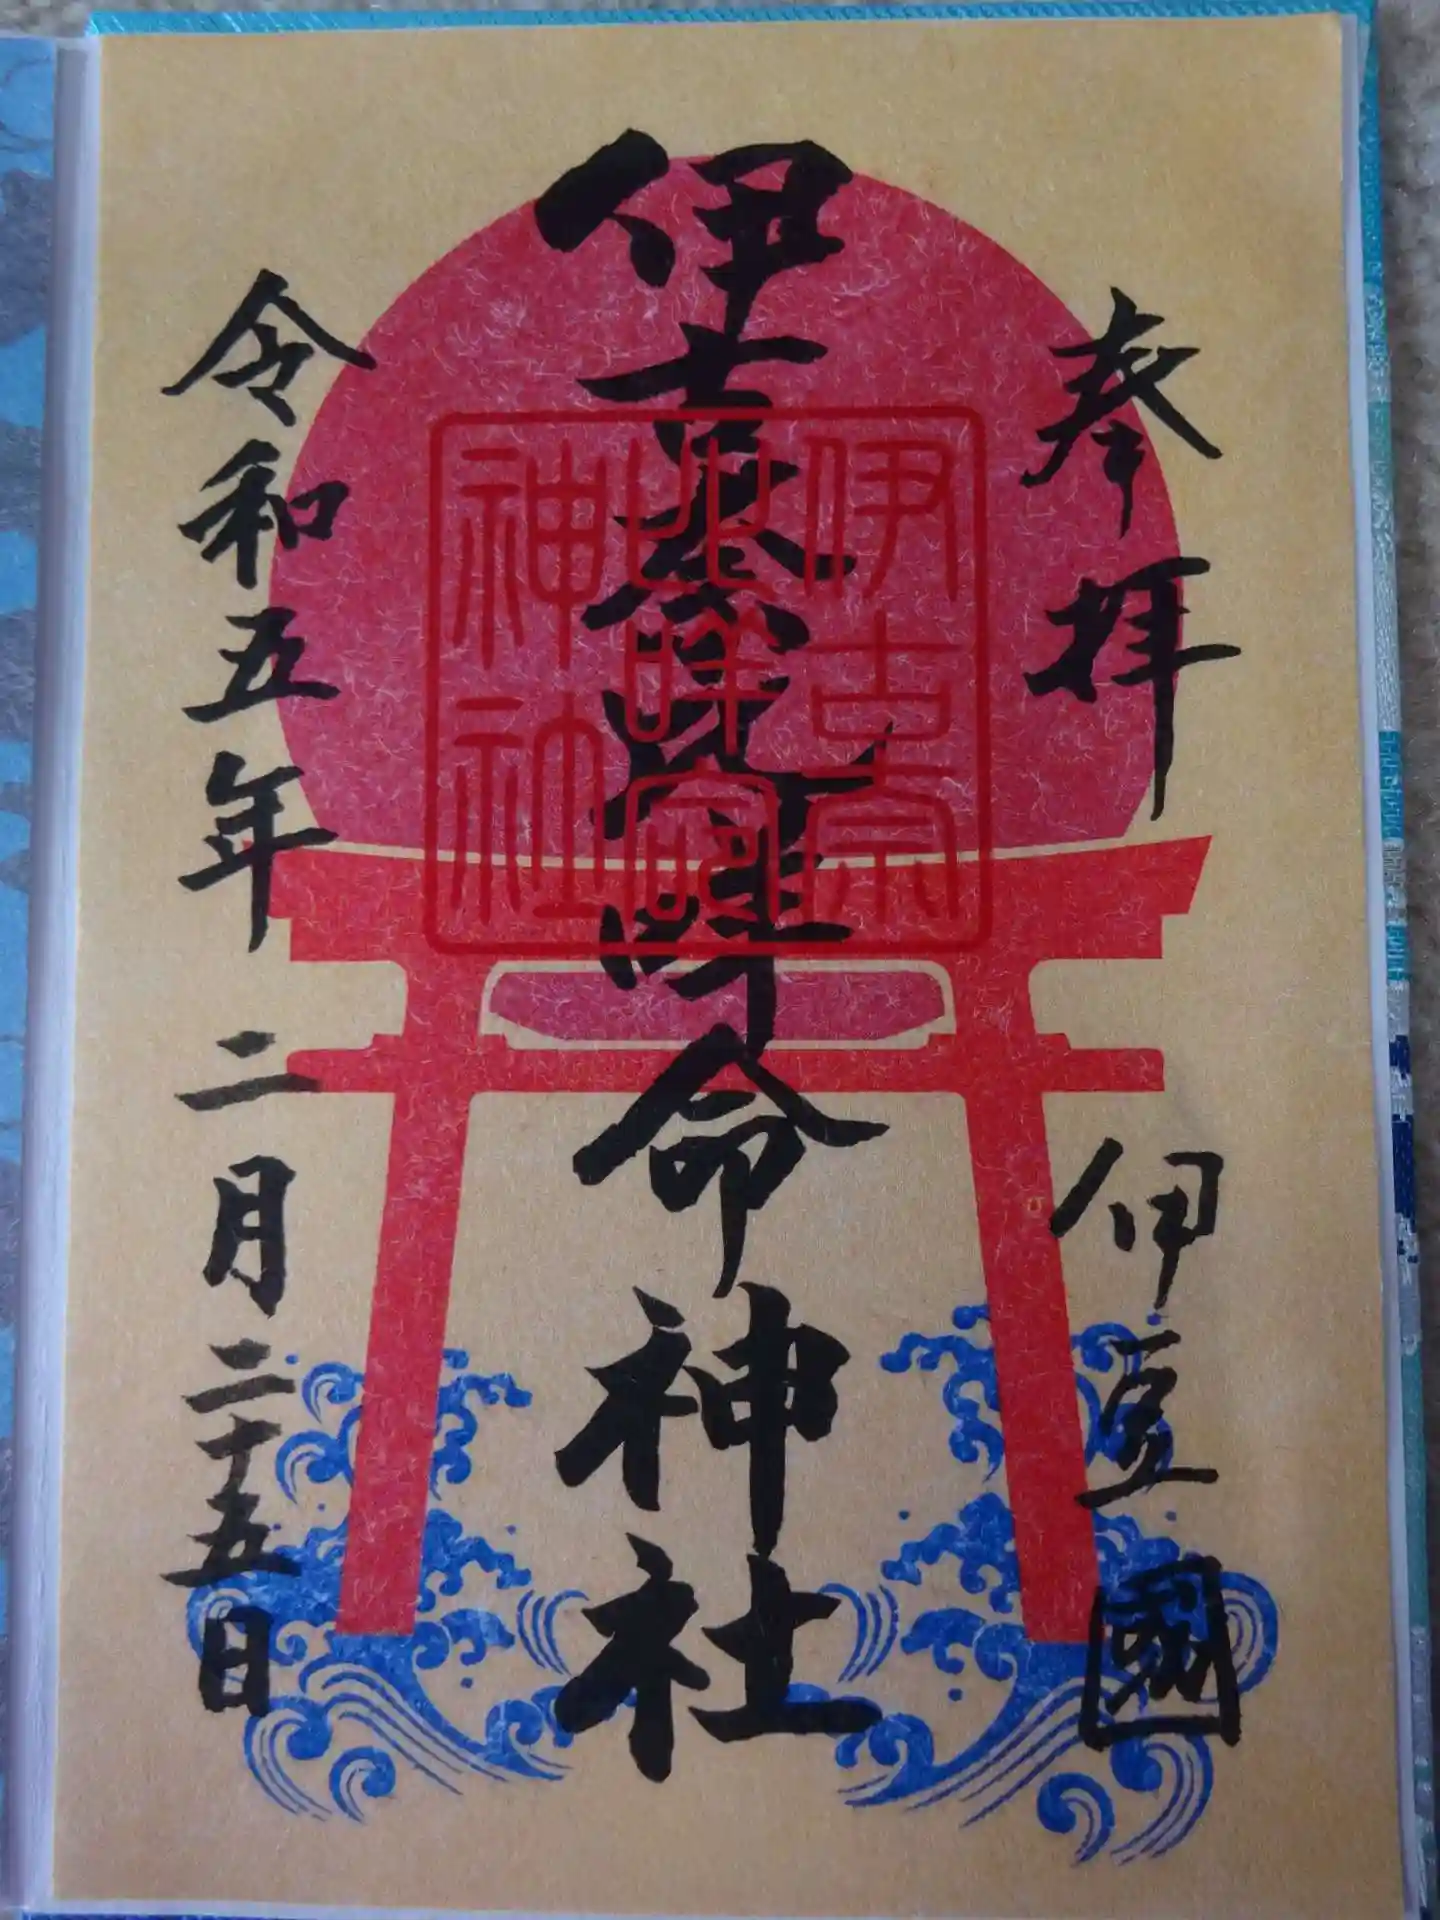 奉拝 伊豆國
伊古奈比咩命神社
伊古奈
比咩命
神社
令和五年 二月二十五日